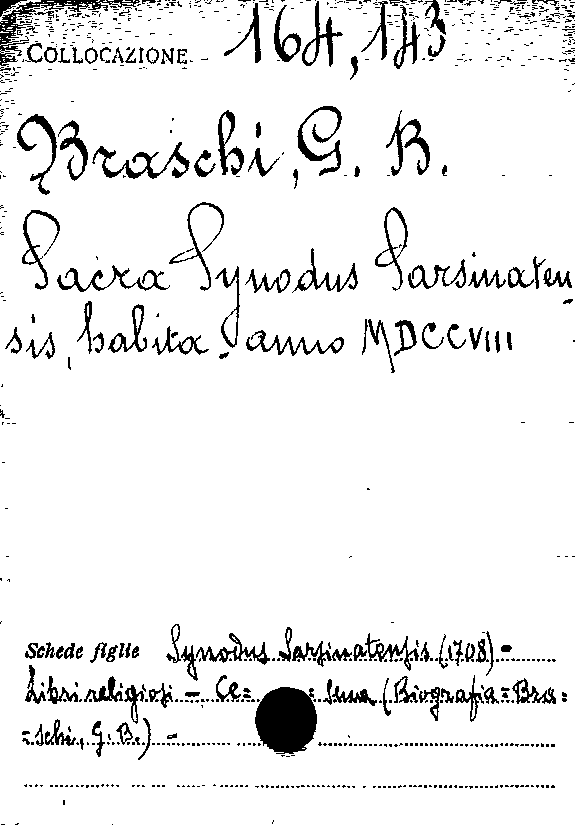 COLLOCAZIONE 164,143
Braschi, G. B.
Sacra Synodus Sarsinaten-
sis, habita anno MDCCVIII
Schede figlie Synodus Sarsinatensis (1708) -
Libri religiosi - Ce= =sena (Biografia=Bra=
=schi, G. B.) -